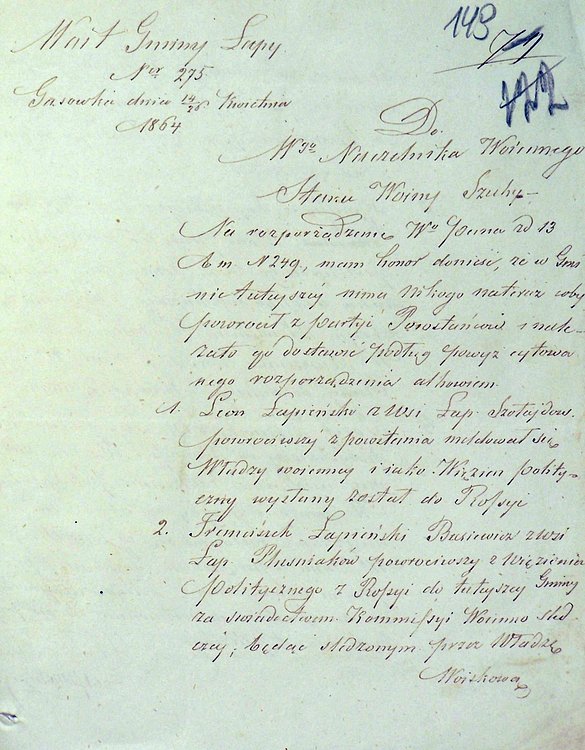 148
71
122
Wóit Gminy Łapy
Nor 275
Gąsówka dnia 14/26 Kwietnia
1864
Do
Wgo Naczelnika Woiennego
Stanu Woiny Szuby
Na rozporządzenie Wo Pana z d 13
b m. N 249, mam honor donieść, że w Gmi
nie tutajszéj nima nikogo nateraz coby
powrocił z partyi Powstańców i nale
żało go dostawić podług powyż cytowa
nego rozporządzenia albowiem.
1. Léon Łapieński z Wsi Łap Szołajdów
powrociwszy z powstania meldował się
Władzy woienney i iako Więzień polity-
czny wysłany został do Rossyi
2. Franciszek Łapieński Basiewicz z Wsi
Łap Pluśniaków powrociwszy z więzienia
politycznego z Rossyi do tutajszej Gminy
za swiadectwem Kommissyi Woienno sled
czej, będąc sledzonym przez Władzę
Woiskową